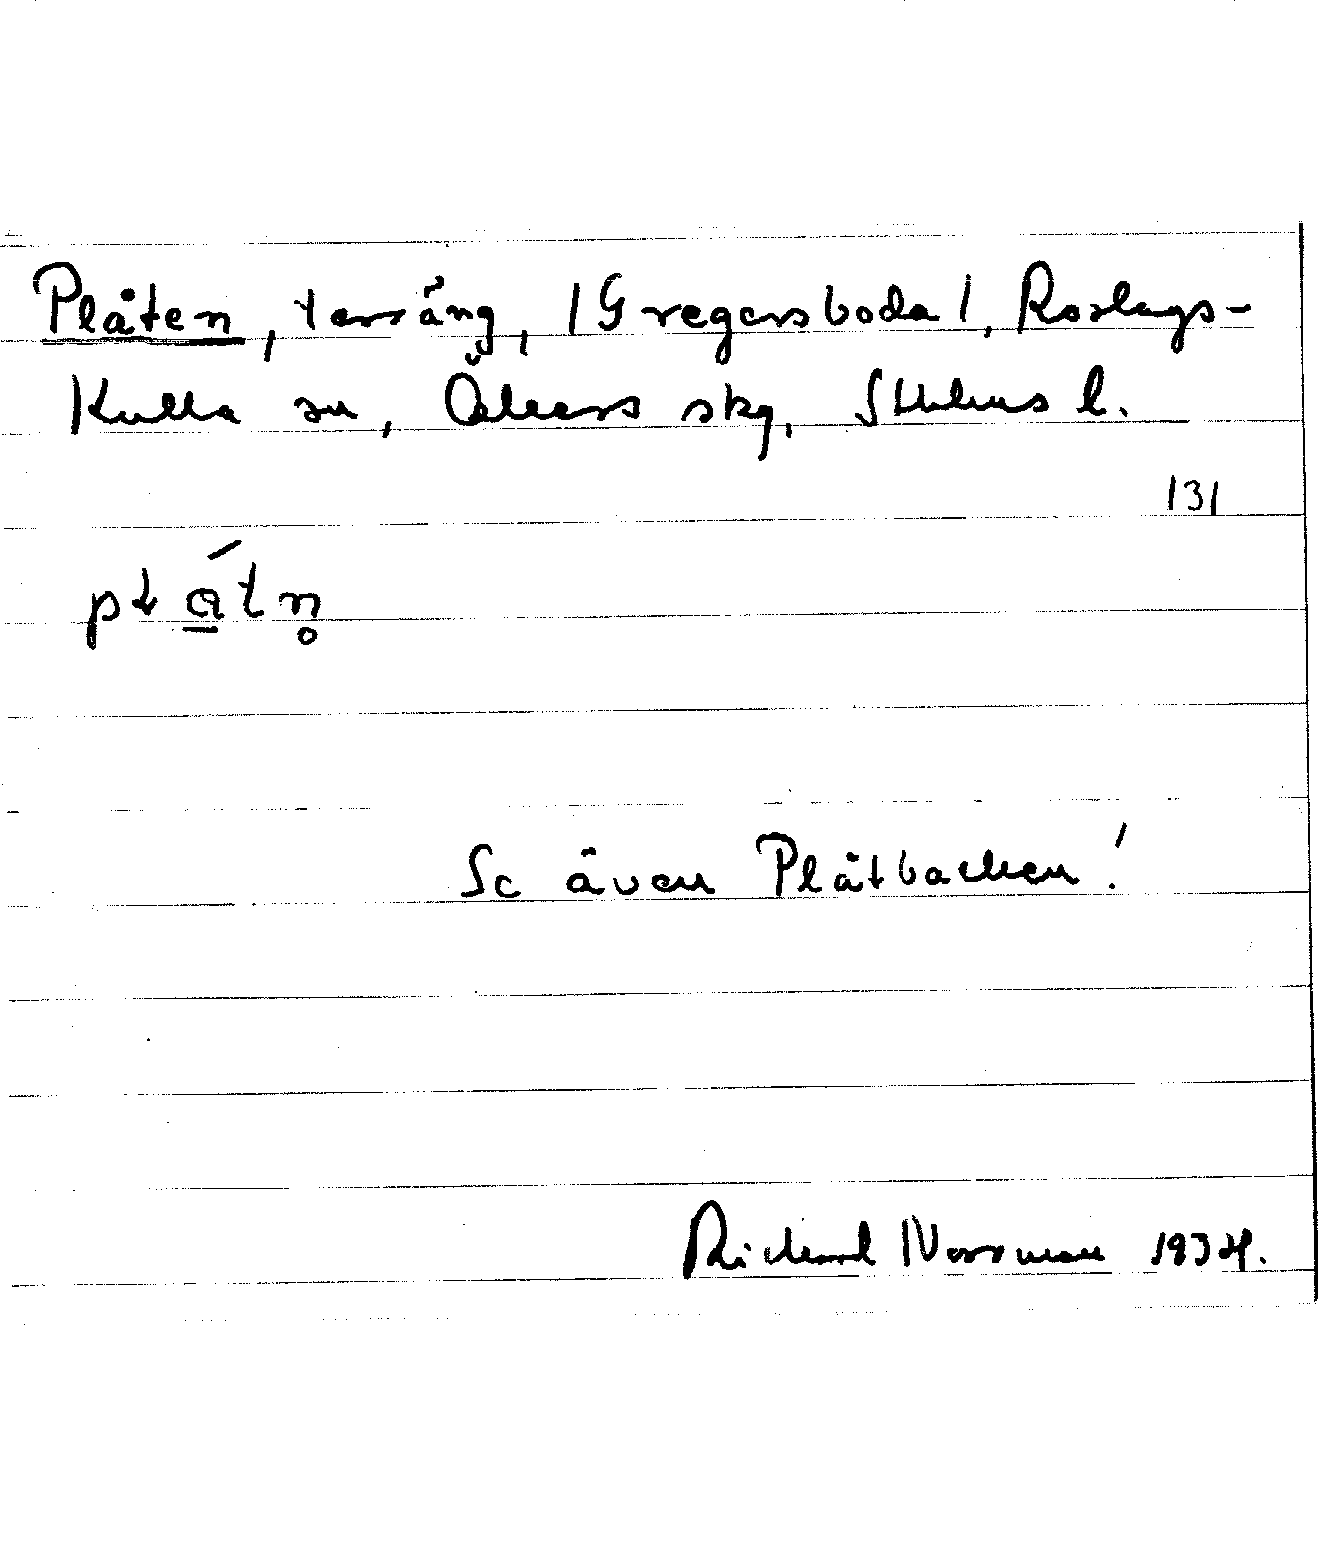 Plåten, terräng, /Gregersboda/, Roslags-
Kulla sn, Åkers skg, Sthlms l.
131
Se även Plåtbacken!
Richard Norrman 1934.